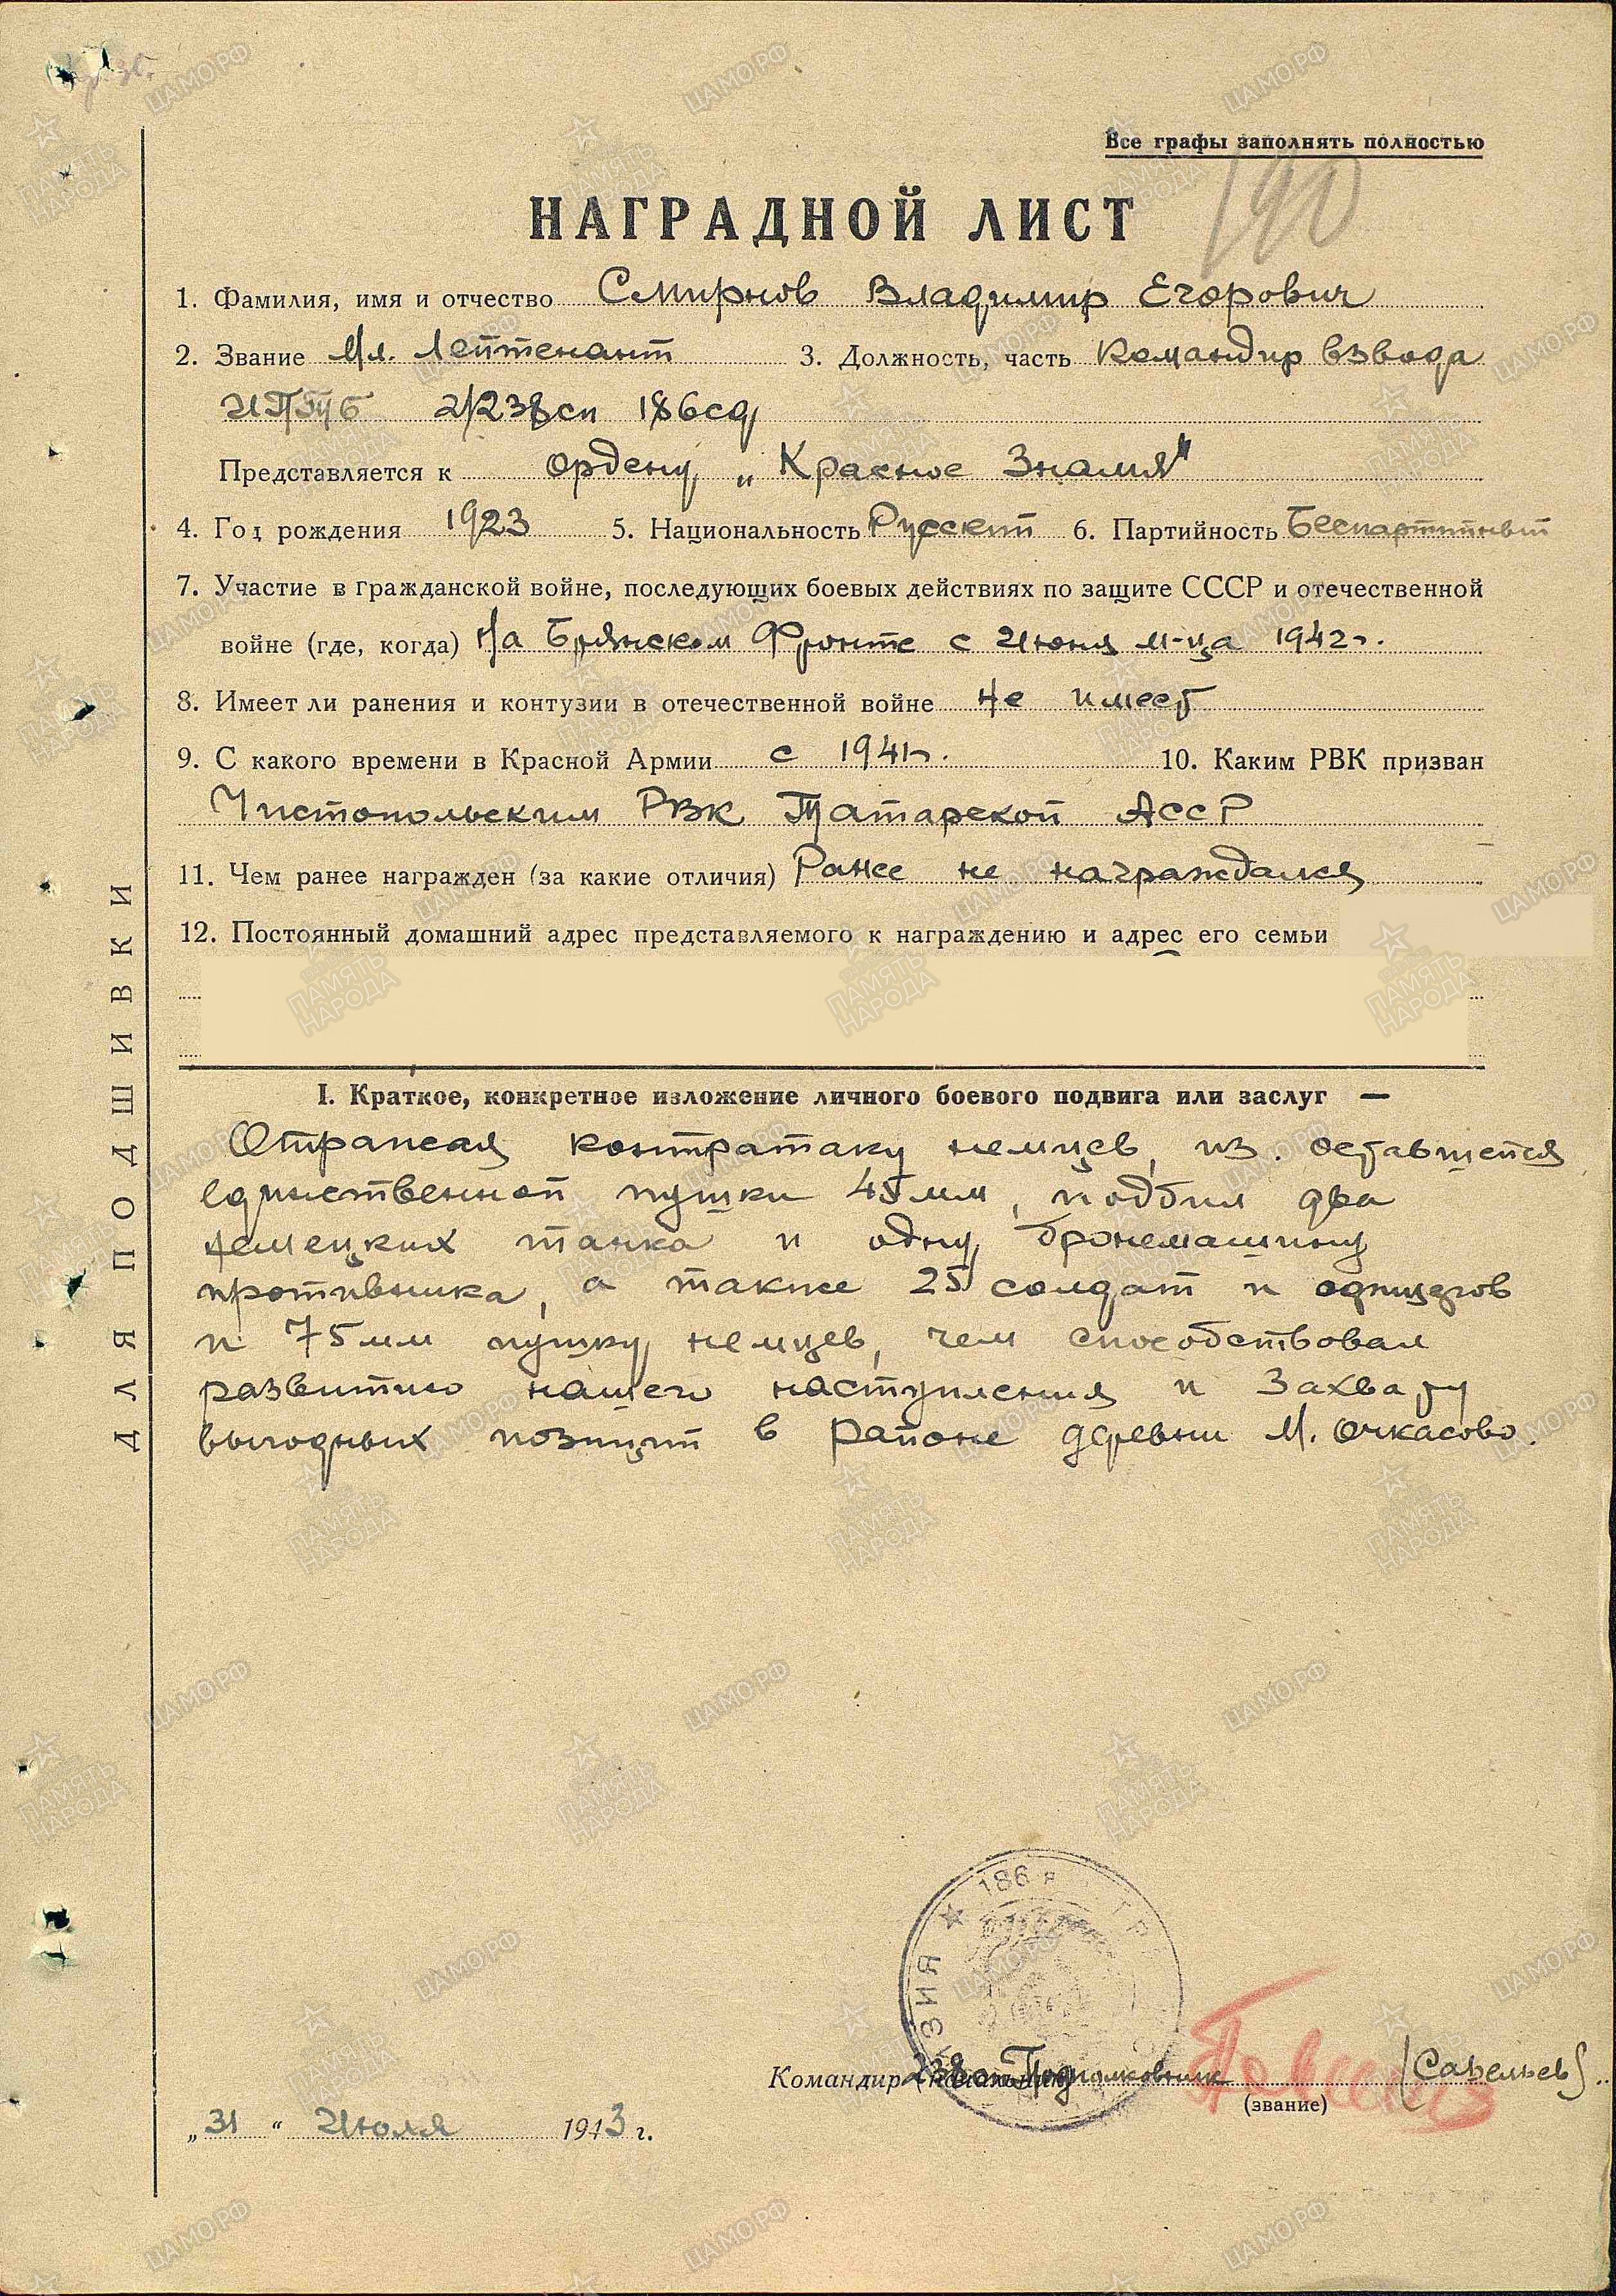 Все графы заполнять полностью
190
НАГРАДНОЙ ЛИСТ
1. Фамилия, имя и отчество Смирнов Владимир Егорович
2. Звание Мл. Лейтенант 3. Должность, часть Командир взвода
2/238сп 186сд
Представляется к ордену „Красное Знамя"
4. Год рождения 1923 5. Национальность Русский 6. Партийность Беспартийный
7. Участие в гражданской войне, последующих боевых действиях по защите СССР и отечественной
войне (где, когда) На Брянском Фронте с Июня м-ца 1942г.
8. Имеет ли ранения и контузии в отечественной войне Не имеет
9. С какого времени в Красной Армии с 1941г. 10. Каким РВК призван
Чистопольским РВК Татарской АССР
11. Чем ранее награжден (за какие отличия) Ранее не награждался
12. Постоянный домашний адрес представляемого к награждению и адрес его семьи
I. Краткое, конкретное изложение личного боевого подвига или заслуг —
Отражая контратаку немцев, из оставшейся
единственной пушки 45мм, подбил два
немецких танка и одну бронемашину
противника, а также 25 солдат и офицеров
и 75мм пушку немцев, чем способствовал
развитию нашего наступления и захвату
выгодных позиций в районе деревни М. Очкасово.
186
ЗИЯ
Командир 238сп Подполковник (Савельев)
(звание)
„31" Июля 1943 г.
ДЛЯ ПОДШИВКИ
ПАМЯТЬ НАРОДА
ЦАМО.РФ